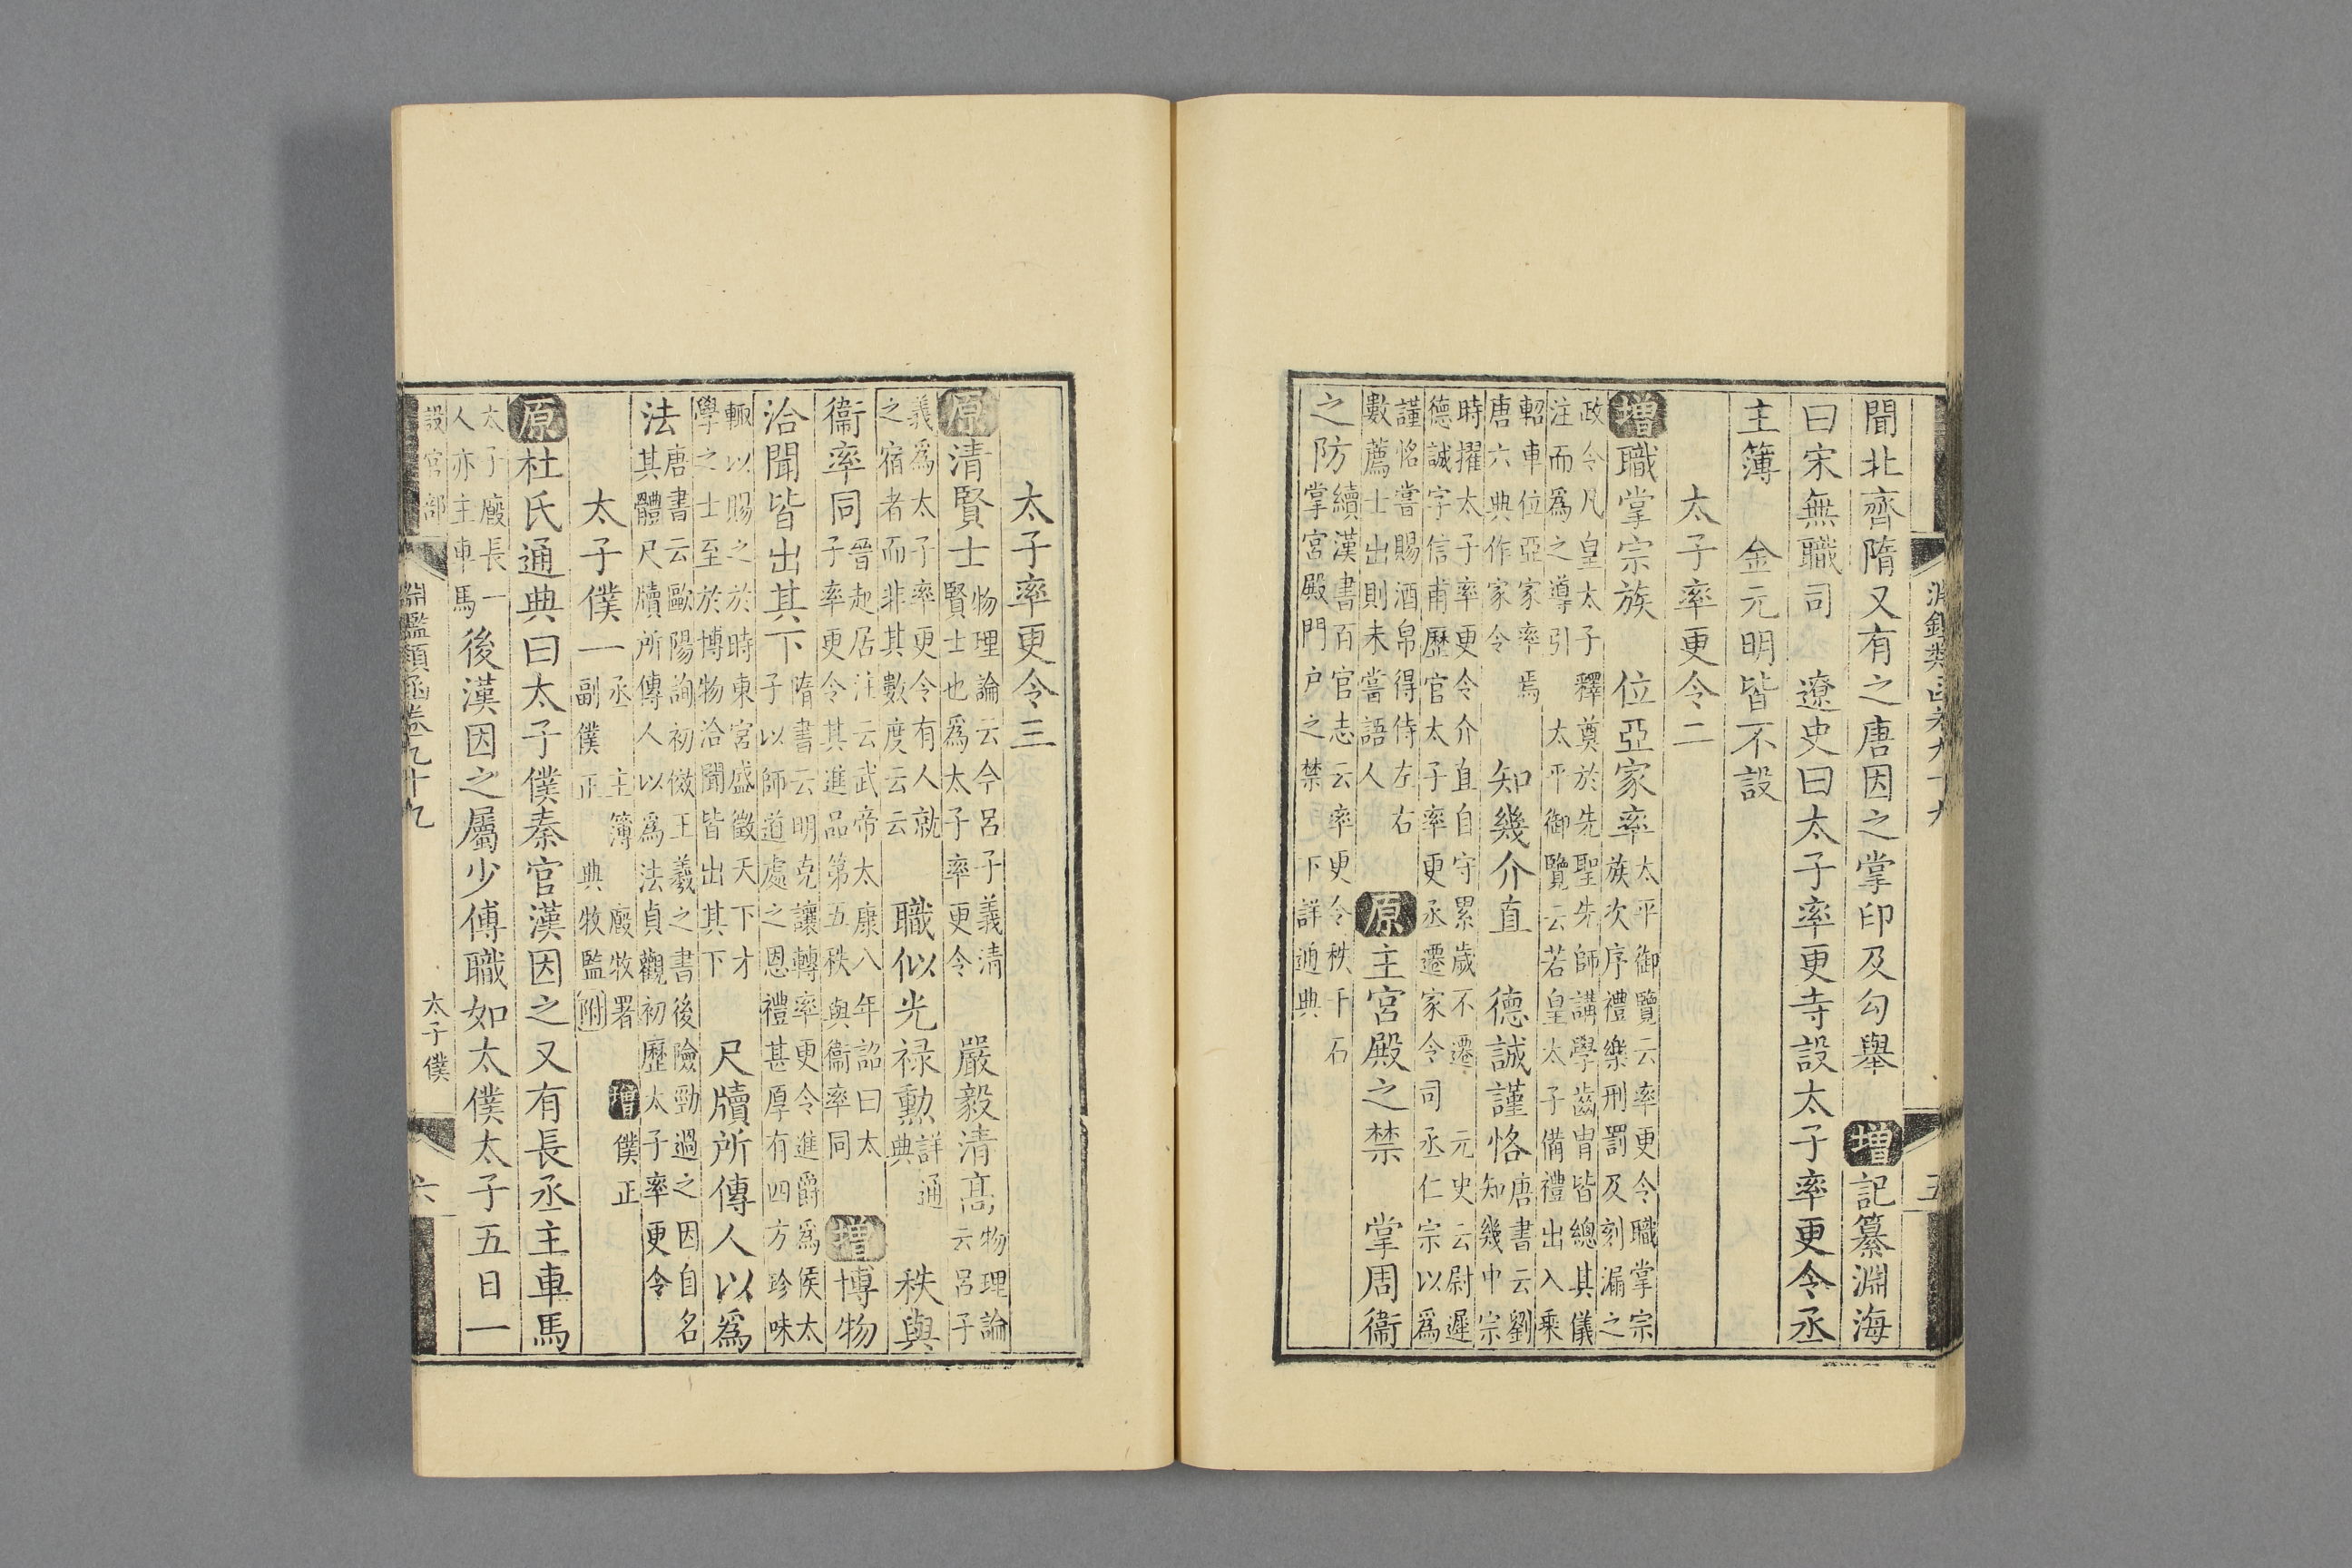 淵鑑類函卷九十九
五
聞北齊隋又有之唐因之掌印及勾舉　增記纂淵海
曰宋無職司　遼史曰太子率更寺設太子率更令丞
主簿　金元明皆不設
太子率更令二
增職掌宗族　位亞家率太平御覽云率更令職掌宗
族次序禮樂刑罰及刻漏之
政令凡皇太子釋奠於先聖先師講學齒胄皆總其儀
注而爲之導引　太平御覽云若皇太子備禮出入乘
軺車位亞家率焉
唐六典作家令　知幾介直　德誠謹恪唐書云劉
知幾中宗
時擢太子率更令介直自守累歲不遷　元史云尉遲
德誠字信甫歷官太子率更丞遷家令司丞仁宗以爲
謹恪嘗賜酒帛得侍左右
數薦士出則未嘗語人　原主宮殿之禁　掌周衞
之防續漢書百官志云率更令秩千石
掌宮殿門戶之禁下詳通典
太子率更令三
原清賢士物理論云今呂子義清
賢士也爲太子率更令　嚴毅清高物理論
云呂子
義爲太子率更令有人就
之宿者而非其數度云云　職似光祿勳詳通
典　秩與
衞率同晉起居注云武帝太康八年詔曰太
子率更令其進品第五秩與衞率同　增博物
洽聞皆出其下隋書云明克讓轉率更令進爵爲侯太
子以師道處之恩禮甚厚有四方珍味
輙以賜之於時東宮盛徵天下才
學之士至於博物洽聞皆出其下　尺牘所傳人以爲
法唐書云歐陽詢初倣王羲之書後險勁過之因自名
其體尺牘所傳人以爲法貞觀初歷太子率更令
太子僕一丞　主簿　廄牧署　增僕正
副僕正　典牧監附
原杜氏通典曰太子僕秦官漢因之又有長丞主車馬
太子廄長一
人亦主車馬後漢因之屬少傅職如太僕太子五日一
設官部
淵鑑類函卷九十九
太子僕
六